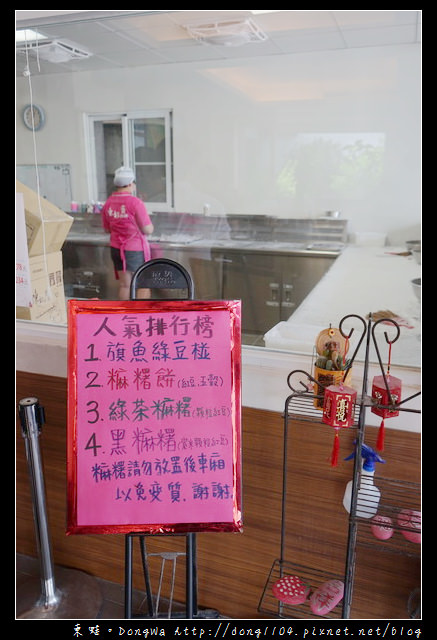 人氣排行榜
1. 旗魚綠豆椪
2. 麻糬餅(紅豆.玉穀)
3. 綠茶麻糬
4. 黑麻糬
麻糬請勿放置後車廂
以免變質.謝謝.
東蛙。DongWa http://dong1104.pixnet.net/blog